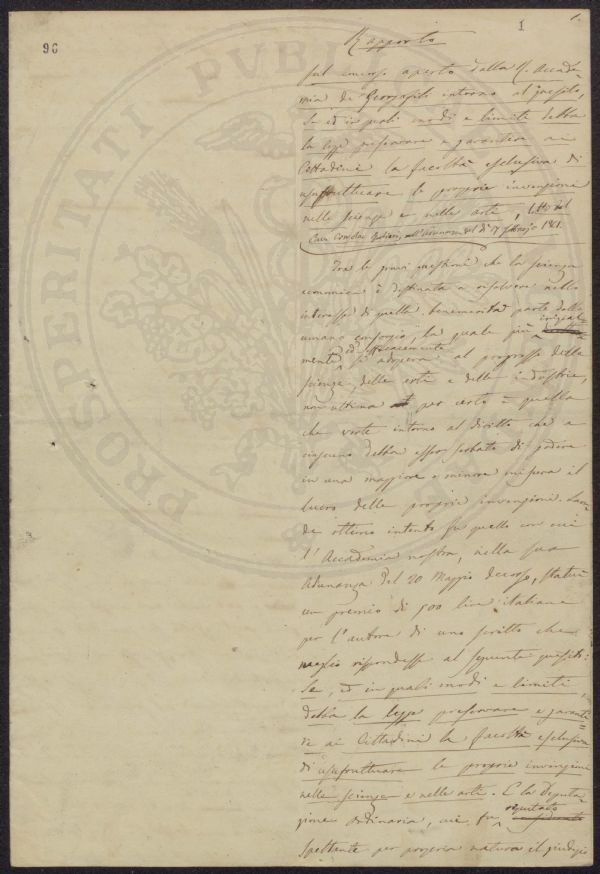 96
1
1.
Rapporto
sul concorso aperto dalla R. Accade-
mia de' Georgofili intorno al quesito,
Se ed in quali modi e limiti debba
la legge preservare e garantire ai
Cittadini la facoltà esclusiva di
usufruttuare le proprie invenzioni
nelle scienze e nelle arti, letto dal
nell'adunanza del dì 17 Febbraio 1861.
Tra le gravi questioni che la scienza
economica è destinata a risolvere nello
interesse di quella benemerita parte dello
umano consorzio, la quale più
mente ed efficacemente si adopera al progresso della
scienza, delle arti e delle industrie,
non ultima per certo è quella
che verte intorno al diritto che a
ciascuno debba esser serbato di godere
in una maggiore o minore misura il
lucro delle proprie invenzioni. Laon-
de ottimo intento fu quello con cui
l'Accademia nostra, nella sua
Adunanza del 20 Maggio decorso, statuì
un premio di 500 lire italiane
per l'autore di uno scritto che
meglio rispondesse al seguente quesito:
Se, ed in quali modi e limiti
debba la legge preservare e garanti-
re ai Cittadini la facoltà esclusiva
di usufruttuare le proprie invenzioni
nelle scienze e nelle arti. E la Deputa-
zione Ordinaria, cui fu reputato
spettante per propria natura il giudizio
PROSPERITATI PVBLICAE